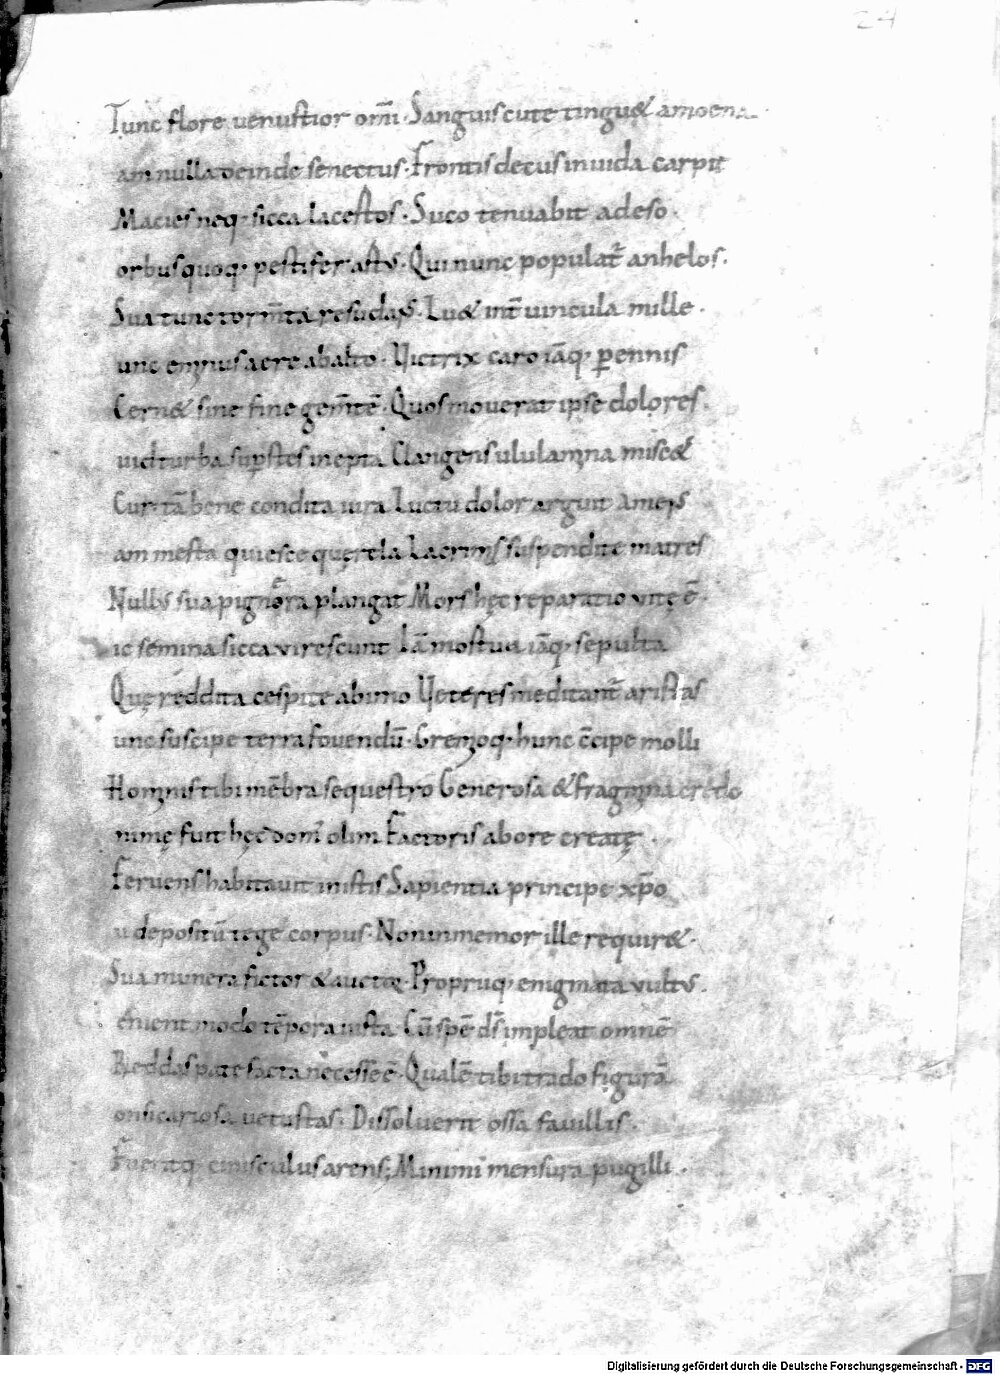 24
Tunc flore venustior om̅i · Sanguis cute tingu& amoena
am nulla deinde senectus · Frontis decus inuida carpit
Macies neq· sicca lacertos · Suco tenuabit adeso ·
orbus quoq· pestifer artus · Qui nunc populat̅ anhelos ·
Sua tunc torm̅ta resudans · Lu& int̅ uincula mille ·
unc eminus aere ab alto · Victrix caro ia̅q· p̲ennis
Cern& sine fine gem̅te̅ · Quos mouerat ipse dolores ·
uid turba sup̲stes inepta Clangens ululamina misc&
Cur ta̅ bene condita iura Luctu dolor arguit amens
am mesta quiesce querela Lacrimas suspendite matres
Nullus sua pignora plangat Mors hęc reparatio vitę e̅ ·
ic semina sicca virescunt Ia̅ mortua ia̅q· sepulta
Quę reddita cespite ab imo Veteres meditant̅ aristas
unc suscipe terra fovendu̅ · Gremioq· hunc c̅cipe molli
Hominis tibi me̅bra sequestro Generosa & fragmina credo
nimę fuit hęc dom̅ olim Factoris ab ore creatę
Fervens habitavit in istis Sapientia principe xp̅o
u depositu̅ tege corpus · Non inmemor ille requir& ·
Sua munera fictor & auctor · Propriiq· enigmata vultus ·
enient modo te̅pora iusta Cu̅ spe̅ ds̅ impleat omne̅
Reddas patefacta necesse e̅ · Quale̅ tibi trado figura̅
on si cariosa vetustas · Dissolverit ossa fauillis ·
Fueritq· cinisculus arens; Minimi mensura pugilli ·
Digitalisierung gefördert durch die Deutsche Forschungsgemeinschaft · DFG